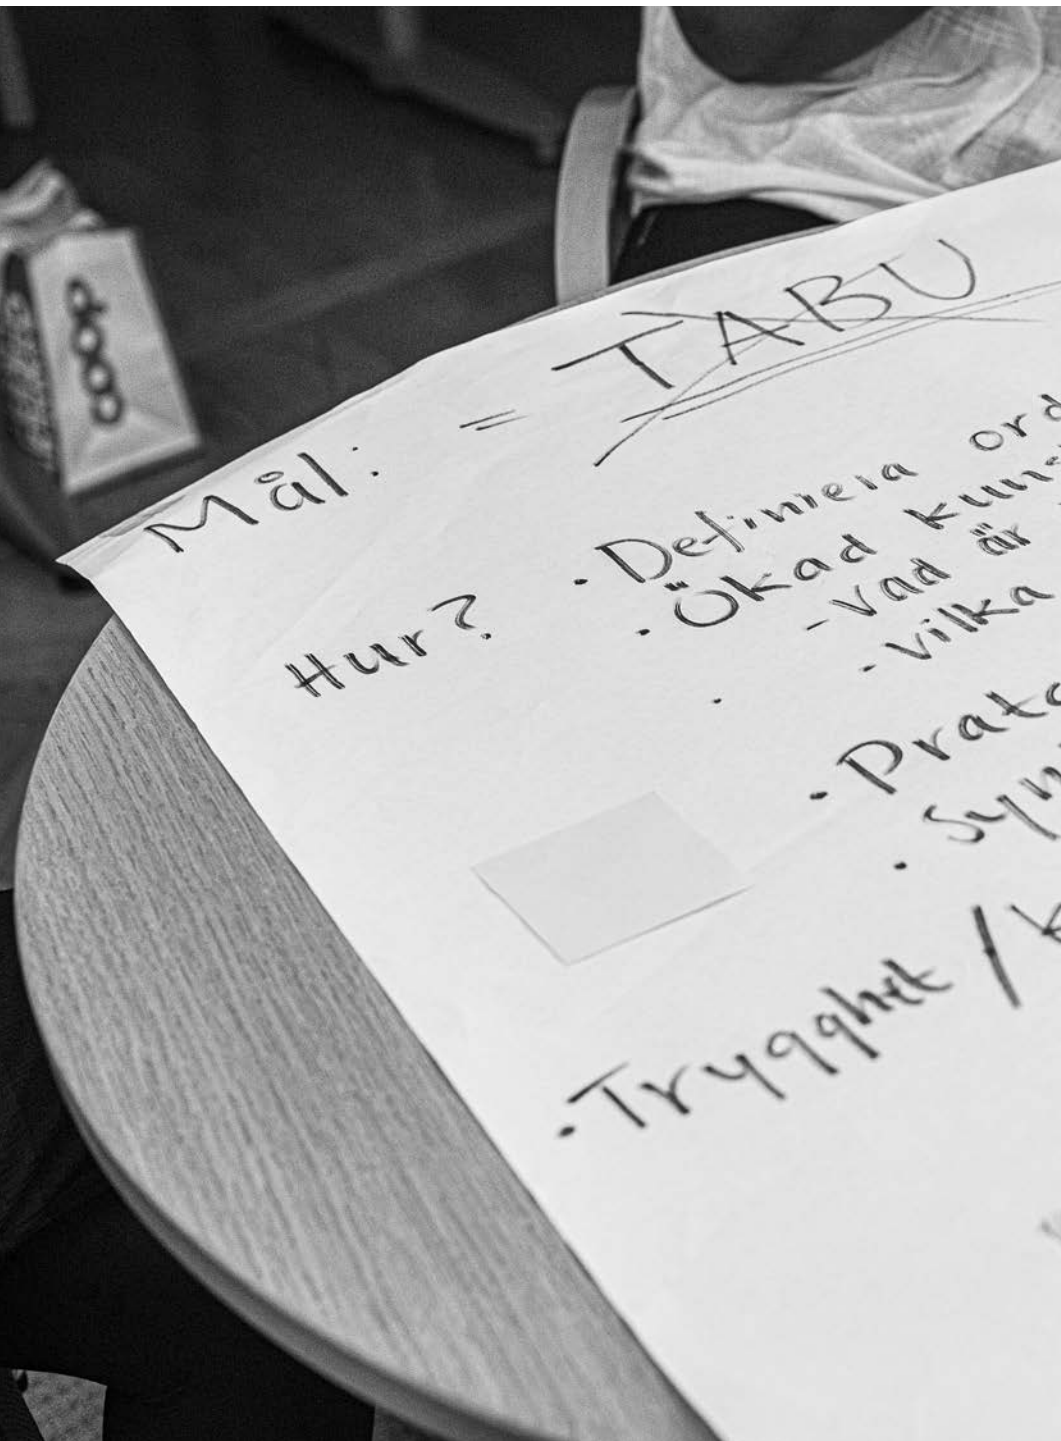 Mål: = TABU
Hur? · Definiera ord
· Ökad kuns
- Vad är
- vilka
·
· Prata
· Syn
· Trygghet / k